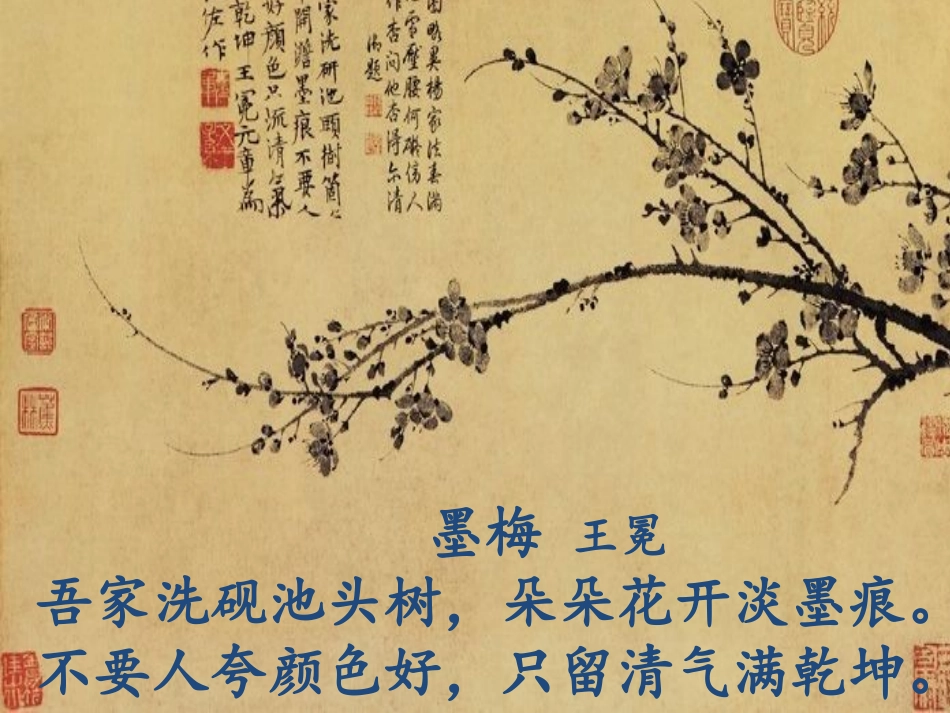 圖畧異楊家法春滿
雪壓腰何礙傍人
作杏問他杏得尒清
御題
家洗研池頭樹箇〻
開澹墨痕不要人
好顏色只流清氣
乾坤王冕元章為
佐作
墨梅 王冕
吾家洗砚池头树，朵朵花开淡墨痕。
不要人夸颜色好，只留清气满乾坤。